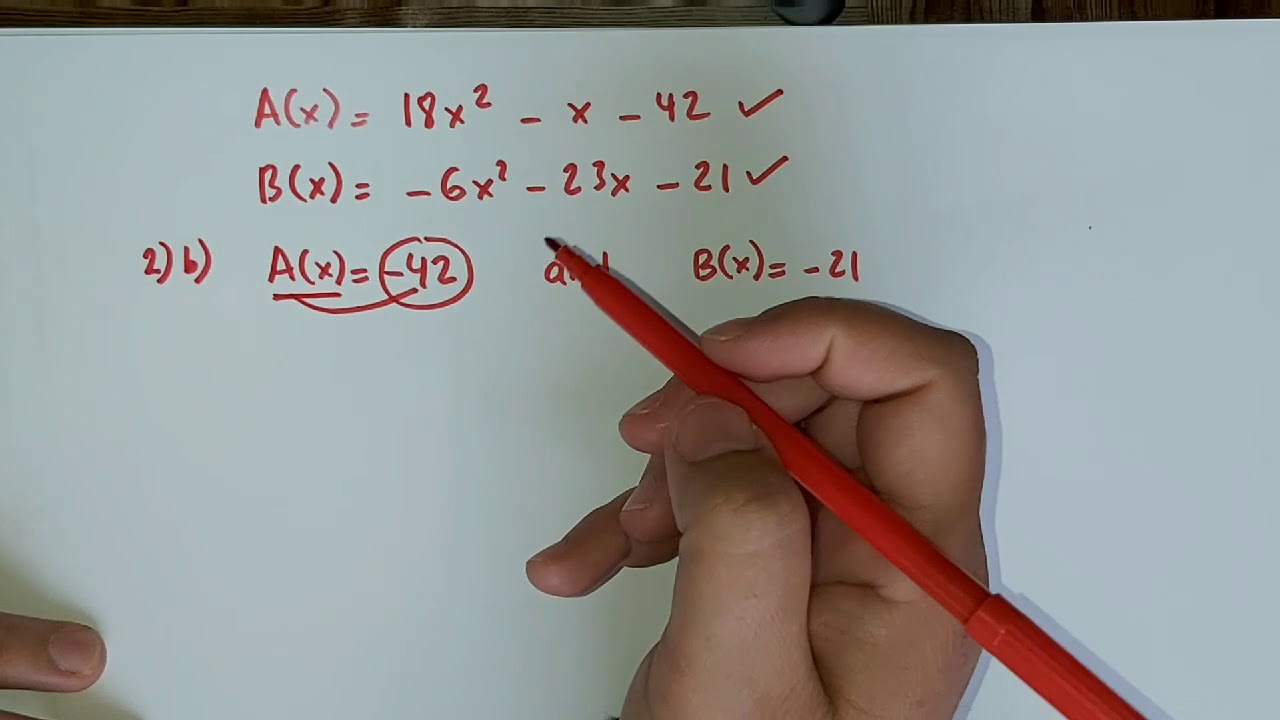 A(x) = 18x² - x - 42 ✓
B(x) = -6x² - 23x - 21 ✓
2) b) A(x) = -42 and B(x) = -21